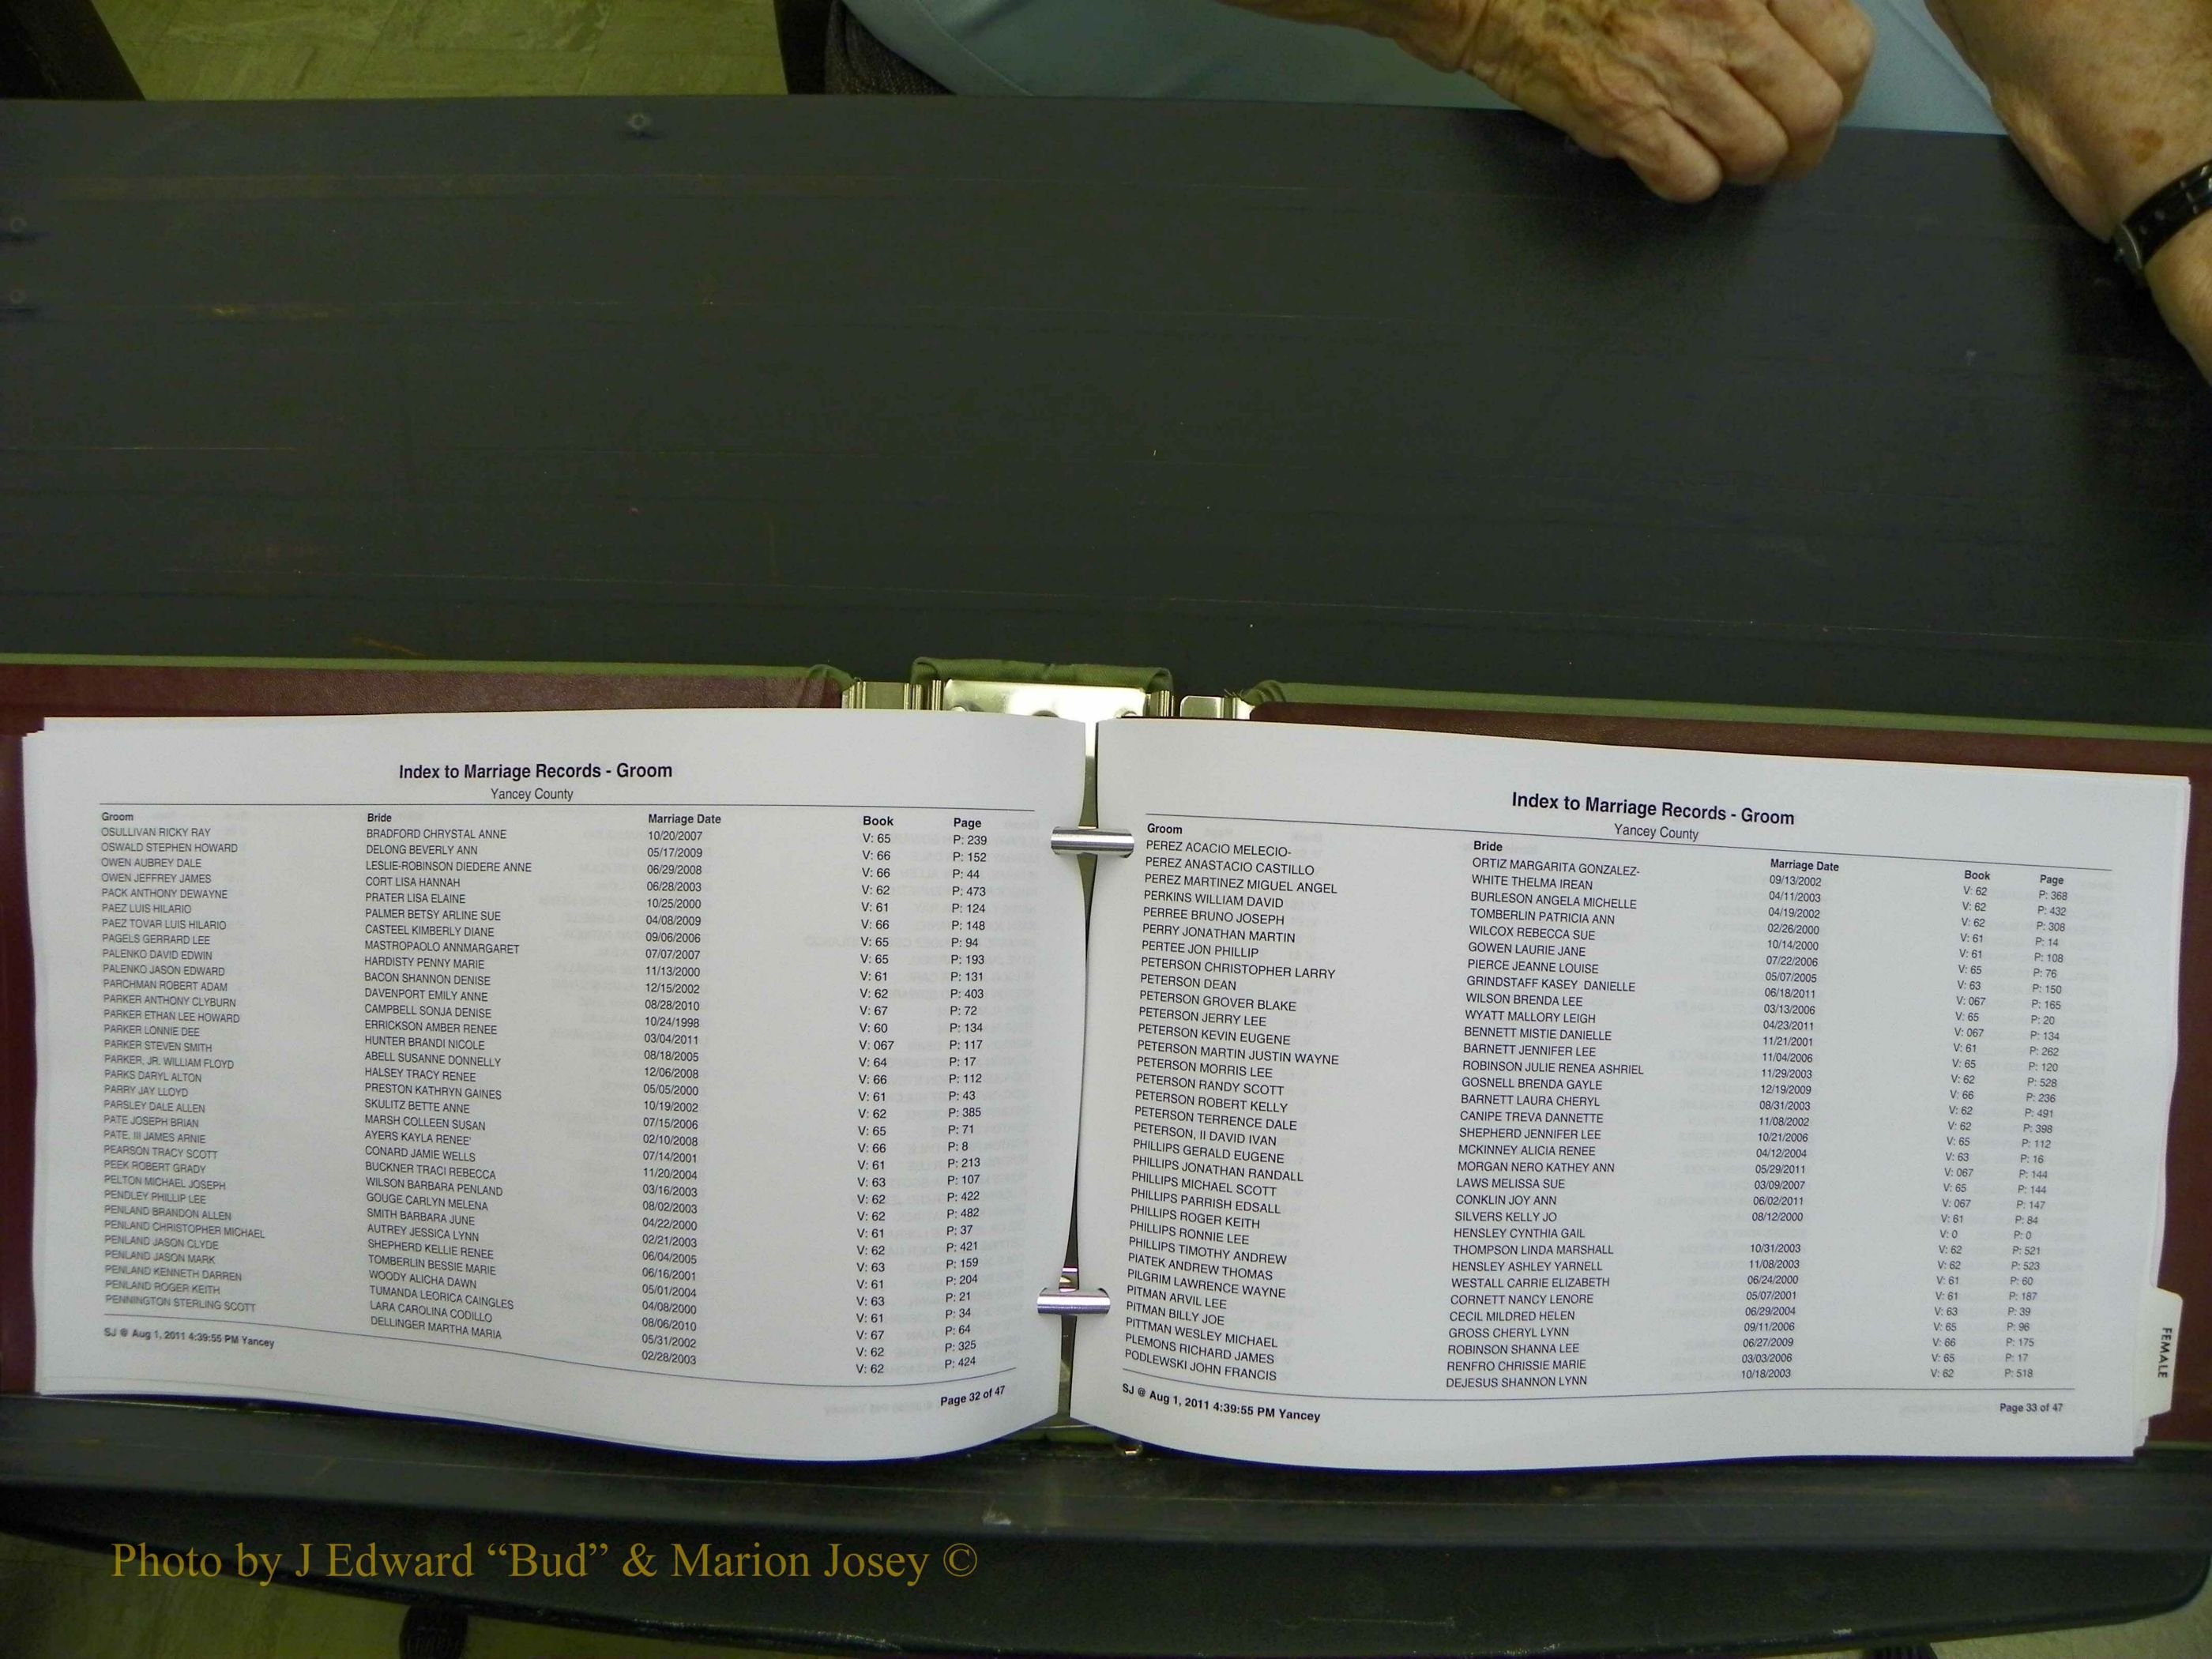 Index to Marriage Records - Groom
Yancey County
Groom Bride Marriage Date Book Page
OSULLIVAN RICKY RAY BRADFORD CHRYSTAL ANNE 10/20/2007 V: 65 P: 239
OSWALD STEPHEN HOWARD DELONG BEVERLY ANN 05/17/2009 V: 66 P: 152
OWEN AUBREY DALE LESLIE-ROBINSON DIEDERE ANNE 06/29/2008 V: 66 P: 44
OWEN JEFFREY JAMES CORT LISA HANNAH 06/28/2003 V: 62 P: 473
PACK ANTHONY DEWAYNE PRATER LISA ELAINE 10/25/2000 V: 61 P: 124
PAEZ LUIS HILARIO PALMER BETSY ARLINE SUE 04/08/2009 V: 66 P: 148
PAEZ TOVAR LUIS HILARIO CASTEEL KIMBERLY DIANE 09/06/2006 V: 65 P: 94
PAGELS GERRARD LEE MASTROPAOLO ANNMARGARET 07/07/2007 V: 65 P: 193
PALENKO DAVID EDWIN HARDISTY PENNY MARIE 11/13/2000 V: 61 P: 131
PALENKO JASON EDWARD BACON SHANNON DENISE 12/15/2002 V: 62 P: 403
PARCHMAN ROBERT ADAM DAVENPORT EMILY ANNE 08/28/2010 V: 67 P: 72
PARKER ANTHONY CLYBURN CAMPBELL SONJA DENISE 10/24/1998 V: 60 P: 134
PARKER ETHAN LEE HOWARD ERRICKSON AMBER RENEE 03/04/2011 V: 067 P: 117
PARKER LONNIE DEE HUNTER BRANDI NICOLE 08/18/2005 V: 64 P: 17
PARKER STEVEN SMITH ABELL SUSANNE DONNELLY 12/06/2008 V: 66 P: 112
PARKER, JR. WILLIAM FLOYD HALSEY TRACY RENEE 05/05/2000 V: 61 P: 43
PARKS DARYL ALTON PRESTON KATHRYN GAINES 10/19/2002 V: 62 P: 385
PARRY JAY LLOYD SKULITZ BETTE ANNE 07/15/2006 V: 65 P: 71
PARSLEY DALE ALLEN MARSH COLLEEN SUSAN 02/10/2008 V: 66 P: 8
PATE JOSEPH BRIAN AYERS KAYLA RENEE' 07/14/2001 V: 61 P: 213
PATE, III JAMES ARNIE CONARD JAMIE WELLS 11/20/2004 V: 63 P: 107
PEARSON TRACY SCOTT BUCKNER TRACI REBECCA 03/16/2003 V: 62 P: 422
PEEK ROBERT GRADY WILSON BARBARA PENLAND 08/02/2003 V: 62 P: 482
PELTON MICHAEL JOSEPH GOUGE CARLYN MELENA 04/22/2000 V: 61 P: 37
PENDLEY PHILLIP LEE SMITH BARBARA JUNE 02/21/2003 V: 62 P: 421
PENLAND BRANDON ALLEN AUTREY JESSICA LYNN 06/04/2005 V: 63 P: 159
PENLAND CHRISTOPHER MICHAEL SHEPHERD KELLIE RENEE 06/16/2001 V: 61 P: 204
PENLAND JASON CLYDE TOMBERLIN BESSIE MARIE 05/01/2004 V: 63 P: 21
PENLAND JASON MARK WOODY ALICHA DAWN 04/08/2000 V: 61 P: 34
PENLAND KENNETH DARREN TUMANDA LEORICA CAINGLES 08/06/2010 V: 67 P: 64
PENLAND ROGER KEITH LARA CAROLINA CODILLO 05/31/2002 V: 62 P: 325
PENNINGTON STERLING SCOTT DELLINGER MARTHA MARIA 02/28/2003 V: 62 P: 424
SJ @ Aug 1, 2011 4:39:55 PM Yancey Page 32 of 47
Index to Marriage Records - Groom
Yancey County
Groom Bride Marriage Date Book Page
PEREZ ACACIO MELECIO- ORTIZ MARGARITA GONZALEZ- 09/13/2002 V: 62 P: 368
PEREZ ANASTACIO CASTILLO WHITE THELMA IREAN 04/11/2003 V: 62 P: 432
PEREZ MARTINEZ MIGUEL ANGEL BURLESON ANGELA MICHELLE 04/19/2002 V: 62 P: 308
PERKINS WILLIAM DAVID TOMBERLIN PATRICIA ANN 02/26/2000 V: 61 P: 14
PERREE BRUNO JOSEPH WILCOX REBECCA SUE 10/14/2000 V: 61 P: 108
PERRY JONATHAN MARTIN GOWEN LAURIE JANE 07/22/2006 V: 65 P: 76
PERTEE JON PHILLIP PIERCE JEANNE LOUISE 05/07/2005 V: 63 P: 150
PETERSON CHRISTOPHER LARRY GRINDSTAFF KASEY DANIELLE 06/18/2011 V: 067 P: 165
PETERSON DEAN WILSON BRENDA LEE 03/13/2006 V: 65 P: 20
PETERSON GROVER BLAKE WYATT MALLORY LEIGH 04/23/2011 V: 067 P: 134
PETERSON JERRY LEE BENNETT MISTIE DANIELLE 11/21/2001 V: 61 P: 262
PETERSON KEVIN EUGENE BARNETT JENNIFER LEE 11/04/2006 V: 65 P: 120
PETERSON MARTIN JUSTIN WAYNE ROBINSON JULIE RENEA ASHRIEL 11/29/2003 V: 62 P: 528
PETERSON MORRIS LEE GOSNELL BRENDA GAYLE 12/19/2009 V: 66 P: 236
PETERSON RANDY SCOTT BARNETT LAURA CHERYL 08/31/2003 V: 62 P: 491
PETERSON ROBERT KELLY CANIPE TREVA DANNETTE 11/08/2002 V: 62 P: 398
PETERSON TERRENCE DALE SHEPHERD JENNIFER LEE 10/21/2006 V: 65 P: 112
PETERSON, II DAVID IVAN MCKINNEY ALICIA RENEE 04/12/2004 V: 63 P: 16
PHILLIPS GERALD EUGENE MORGAN NERO KATHEY ANN 05/29/2011 V: 067 P: 144
PHILLIPS JONATHAN RANDALL LAWS MELISSA SUE 03/09/2007 V: 65 P: 144
PHILLIPS MICHAEL SCOTT CONKLIN JOY ANN 06/02/2011 V: 067 P: 147
PHILLIPS PARRISH EDSALL SILVERS KELLY JO 08/12/2000 V: 61 P: 84
PHILLIPS ROGER KEITH HENSLEY CYNTHIA GAIL V: 0 P: 0
PHILLIPS RONNIE LEE THOMPSON LINDA MARSHALL 10/31/2003 V: 62 P: 521
PHILLIPS TIMOTHY ANDREW HENSLEY ASHLEY YARNELL 11/08/2003 V: 62 P: 523
PIATEK ANDREW THOMAS WESTALL CARRIE ELIZABETH 06/24/2000 V: 61 P: 60
PILGRIM LAWRENCE WAYNE CORNETT NANCY LENORE 05/07/2001 V: 61 P: 187
PITMAN ARVIL LEE CECIL MILDRED HELEN 06/29/2004 V: 63 P: 39
PITMAN BILLY JOE GROSS CHERYL LYNN 09/11/2006 V: 65 P: 96
PITTMAN WESLEY MICHAEL ROBINSON SHANNA LEE 06/27/2009 V: 66 P: 175
PLEMONS RICHARD JAMES RENFRO CHRISSIE MARIE 03/03/2006 V: 65 P: 17
PODLEWSKI JOHN FRANCIS DEJESUS SHANNON LYNN 10/18/2003 V: 62 P: 518
SJ @ Aug 1, 2011 4:39:55 PM Yancey Page 33 of 47
FEMALE
Photo by J Edward “Bud” & Marion Josey ©